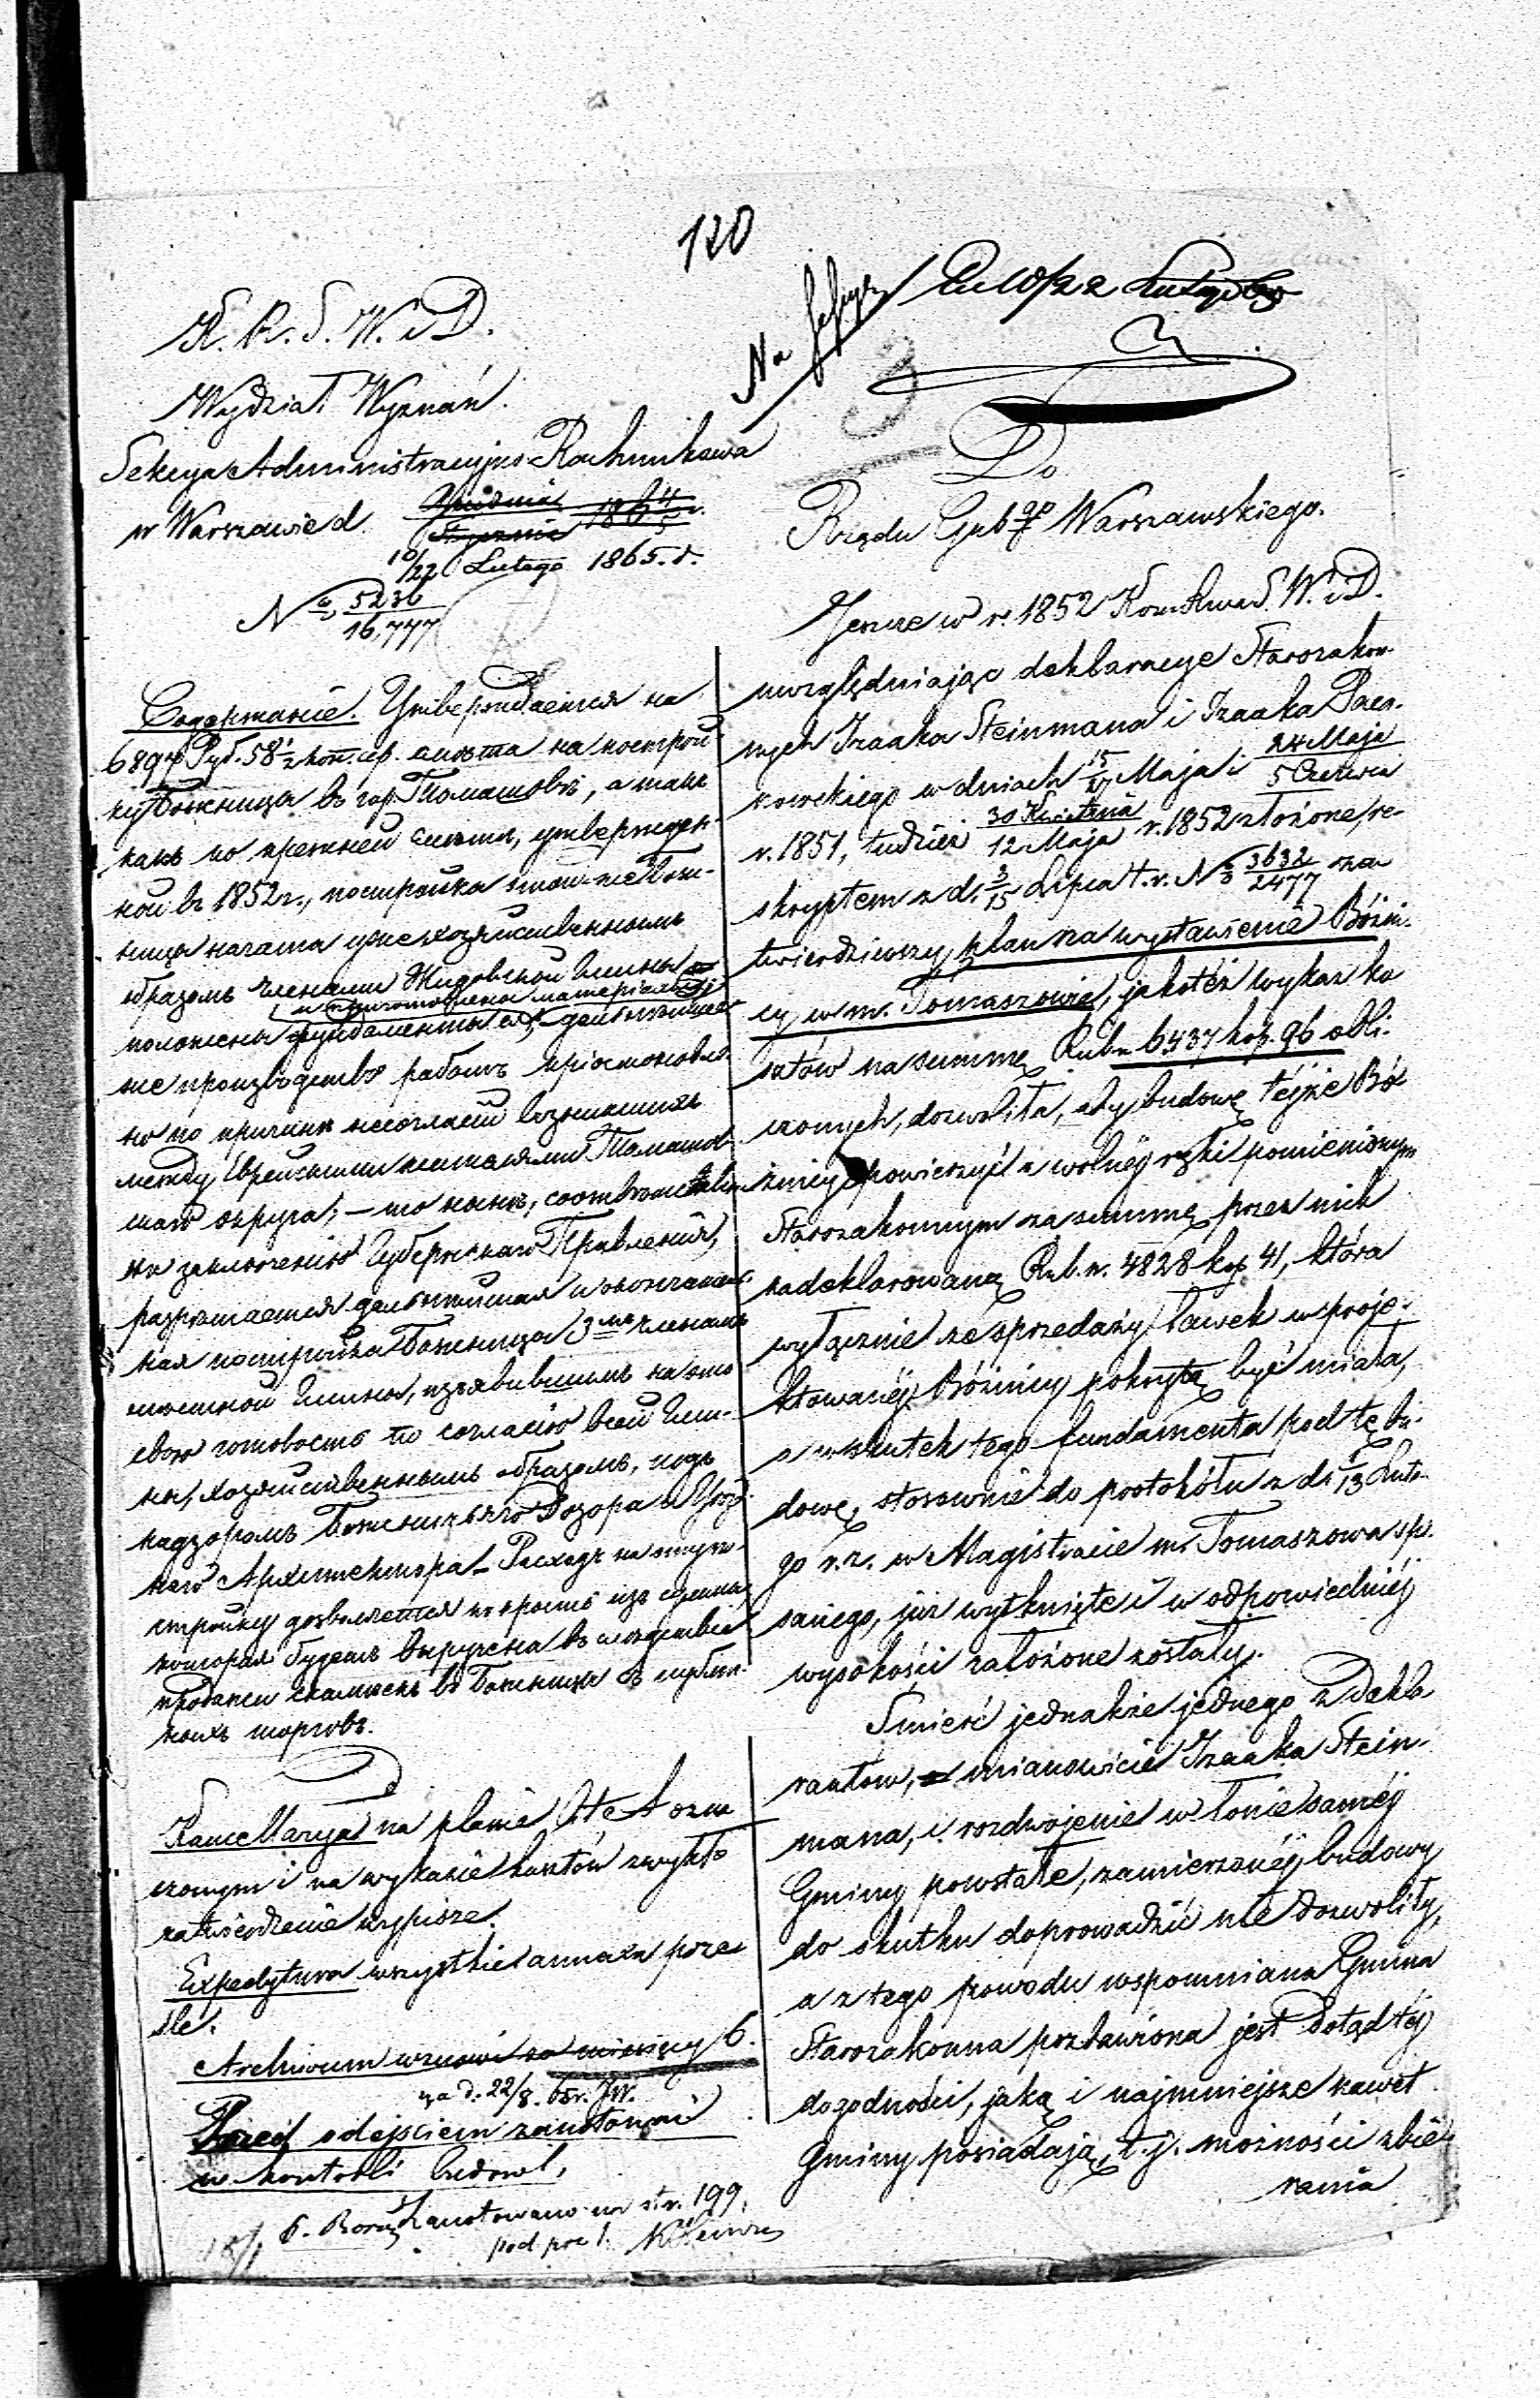 120
K. R. S. W. i D.
Wydział Wyznań.
Sekcya Administracyjno-Rachunkowa
w Warszawie d. Grudnia / Stycznia 186 4/5 r.
10/22 Lutego 1865. r.
N o 5236 / 16,777
Na
Do
Rządu Gub go Warszawskiego.
Содержаніе. Утверждается на
6897 Руб. 58 1/2 коп. сер. смѣта на построй-
ку Божницы въ гор. Томашовѣ, а такъ
какъ по прежней смѣтѣ, утвержден-
ной въ 1852 г., постройка этой-же Бож-
ницы начата уже хозяйственнымъ
образомъ членами Жидовской Гмины
и приготовлены матеріалы
положены фундаменты, дальнѣйшее
же производство работъ пріостановле-
но по причинѣ несогласій возникшихъ
между Еврейскими жителями Томашов-
скаго округа; – то нынѣ, соотвѣтствен-
но заключенію Губернскаго Правленія,
разрѣшается дальнѣйшая и окончатель-
ная постройка Божницы 3 мъ членамъ
мѣстной Гмины, изъявившимъ на это
свою готовость по согласію всей Гми-
ны, хозяйственнымъ образомъ, подъ
надзоромъ Божничьяго Дозора и Уѣзд-
наго Архитектора – Расходъ на эту по-
стройку дозволяется покрыть изъ суммы,
которая будетъ выручена въ слѣдствіе
продажи скамеекъ въ Божницѣ съ публич-
ныхъ торговъ.
Kancellarya na planie lite A ozna
czonym i na wykazie kosztów zwykłe
zatwierdzenie wypisze.
Expedytura wszystkie annexa prze
śle.
Archiwum wznowi za miesięcy 6.
za d. 22/8. 65 r.
Przed odejściem zanotować
w kontroli budowl,
Zanotowano na str. 199,
pod poz 1.
Jeszcze w r. 1852 Kom. Rząd. S. W. i D.
uwzględniając deklaracye Starozakon-
nych Izaaka Steinmana i Izaaka Pacz-
kowskiego w dniach 15/27 Maja i 24 Maja / 5 Czerwca
r. 1851, tudzież 30 Kwietnia / 12 Maja r. 1852 złożone, re-
skryptem z d. 3/15 Lipca t. r. N o 3632 / 2477 za-
twierdziwszy plan na wystawienie Bóżni-
cy w m. Tomaszowie, jakoteż wykaz ko
sztów na summę Rub. 6437 kop. 96 obli-
czonych, dozwoliła, aby budowę téjże Bó-
żnicy powierzyć z wolnéj ręki pomienionym
Starozakonnym za summę przez nich
zadeklarowaną Rub. sr. 4828 kop 41, która
wyłącznie ze sprzedaży ławek w proje-
ktowanéj Bóżnicy pokrytą być miała,
a w skutek tego fundamenta pod tę bu-
dowę, stosownie do protokółu z d. 1/13 Lute-
go r. z. w Magistracie m. Tomaszowa sp-
sanego, już wytknięte i w odpowiedniéj
wysokości założone zostały.
Śmierć jednakże jednego z dekla-
rantów, mianowicie Izaaka Stein-
mana, i rozdwojenie w łonie saméj
Gminy powstałe, zamierzonéj budowy
do skutku doprowadzić nie dozwoliły,
a z tego powodu wspomniana Gmina
Starozakonna pozbawiona jest dotąd téj
dogodności, jaką i najmniejsze nawet
Gminy posiadają, t. j. możności zbie-
rania